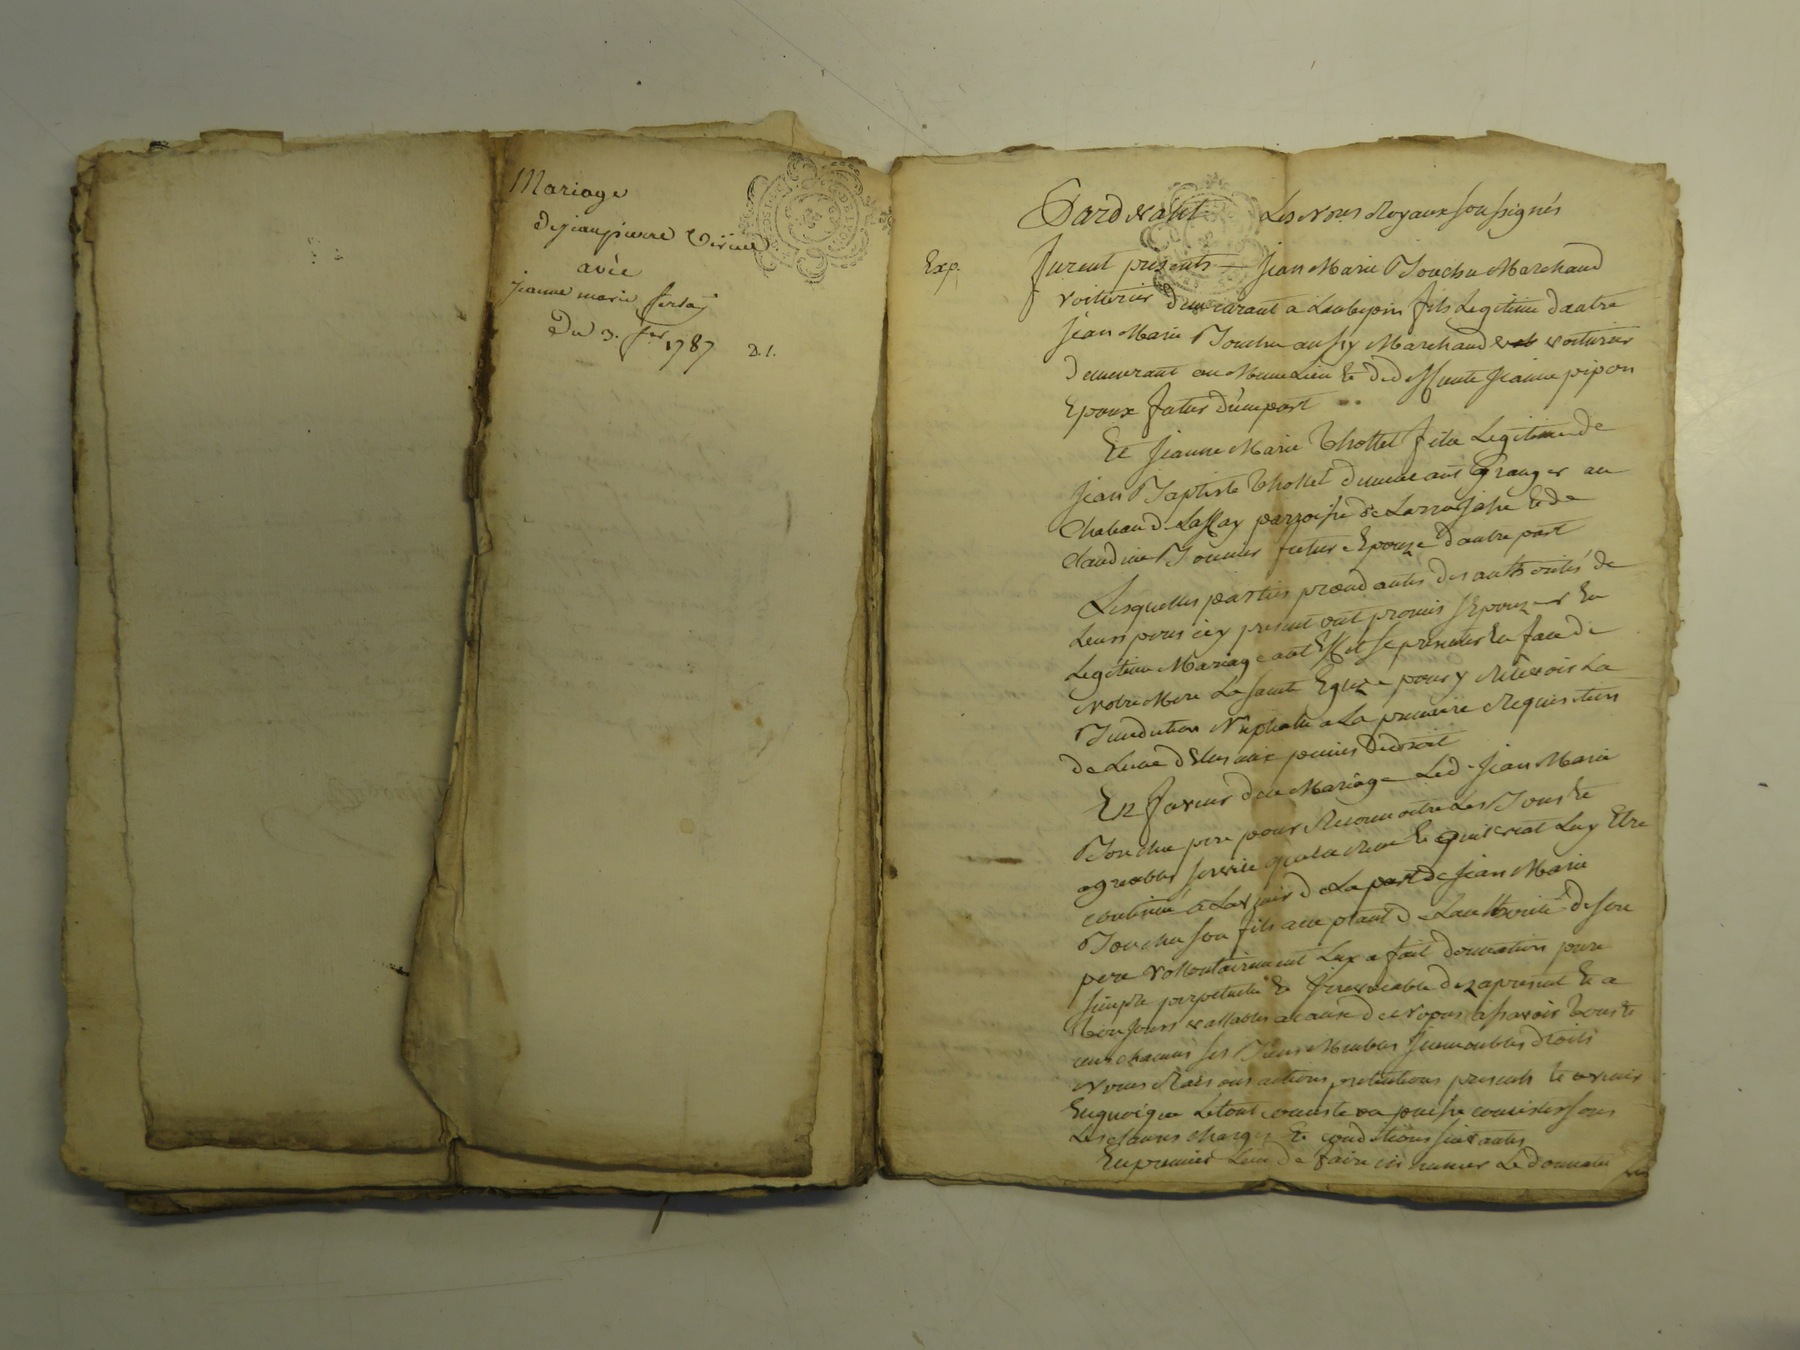 Mariage
de jean pierre
avec
jeanne marie
Du 3. fer 1787 D.1.
Pardevant Les Nores Royaux soussignés
Exp.
furent présents — Jean Marie Bouchu Marchand
voiturier demeurant a Laubepin fils Legitime dautre
Jean Marie Bouchu aussy Marchand voiturier
demeurant au Meme Lieu Et de deffunte Jeanne pipon
Epoux futur d'une part
Et Jeanne Marie Thollet fille Legitime de
Jean Baptiste Thollet demeurant Granger au
parroisse de Larrajasse Et de
Claudine Bonnier future Epouze dautre part
Lesquelles parties procedantes des authorités de
Leurs peres icy present ont promis s'Epouzer En
Legitime Mariage a cet Effet se presenter En face de
Notre Mere La sainte Eglize pour y Recevoir La
Benediction Nuptialle a La premiere Requisition
de Lune d'Elles aux peines de droit
En faveur de ce Mariage Led. Jean Marie
Bouchu pere pour Reconnoitre Les Bons Et
agreables services quil a Recu Et quil croit Luy Etre
continué a Lavenir de La part de Jean Marie
Bouchu son fils acceptant de Lauthorité de son
pere vollontairement Luy a fait donnation pure
simple perpetuelle Et Irrevocable dez apresent Et a
toujours vallables a cause de nopces a scavoir tous Et
uns chacuns ses Biens Meubles Immeubles droits
noms Raisons actions pretentions presents Et avenir
Enquoique Le tout consiste ou puisse consister sous
Les clauses charges Et conditions suivantes
En premier Lieu de faire par Led donnataire